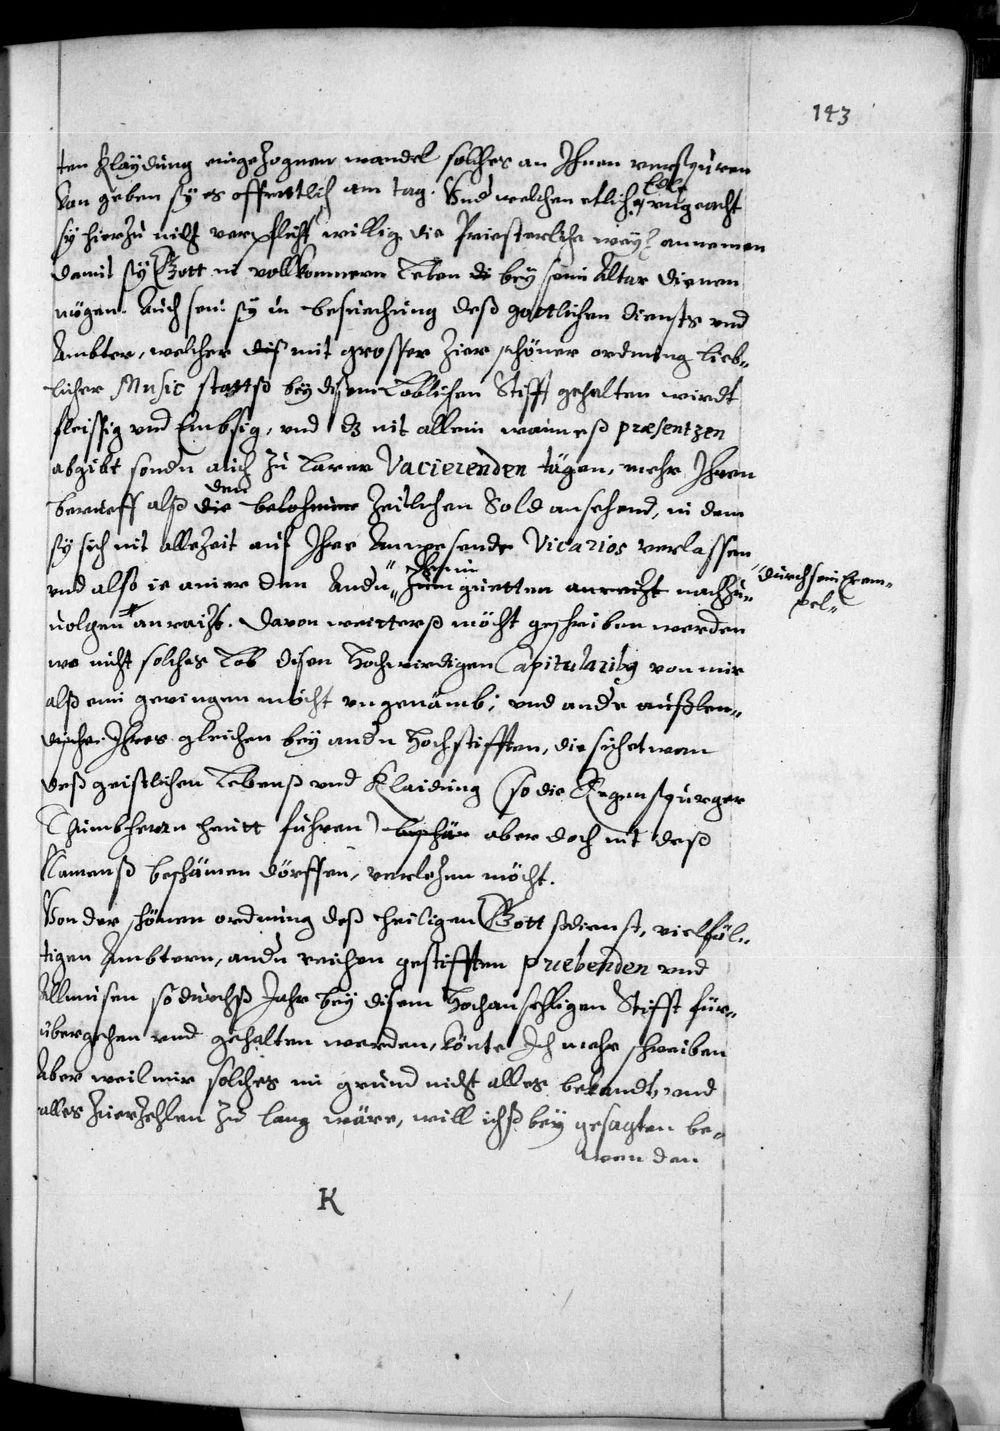 143
ten Klaÿdung eingezognen wandel solches an Ihnen verspüren
kan geben sÿ es offentlich am tag. Vnd welchen etliche Edle vngeacht
sÿ hierzu nicht verpflicht willig die Priesterliche weÿ annemen
damit sÿ Gott in vollkommnem Leben di beÿ seim Altar dienen
mögen. Auch sein sÿ in besuechung deß göttlichen diensts vnd
Ämbter, welcher diß mit grosser Zier schöner ordnung lieb-
licher Music stattß beÿ disem Loblichen Stifft gehalten wirdt
fleissig vnd Embsig, vnd dz nit allein wann eß præsentzen
abgibt sondn auch zu Larer Vacierenden tägen, mehr Ihren
berueff alß die den belohnung Zeitlichen Sold ansehend, in dem
sÿ sich nit alleZeit auf Ihre Anwesende Vicarios verlassen
vnd also ie ainer den Andn" zum guetten anraitzt nachzu-
"durch sein Exem-
pel"
uolgen anraitzt. Dauon weitterß möcht geschriben werden
wo nicht solches Lob disen Hochwirdigen Capitularibus von mir
alß eim geringen möcht vngenämb, vnd andre außlen-
dische Ihres gleichen beÿ andn Hochstifften, die sich etwan
deß geistlichen Lebenß vnd Klaidung (so die Regenspurger
Thumbherrn heutt führen) beschäm aber doch nit deß
Namenß beschämen dörffen, verlezen möcht.
Von der schönen ordnung deß heiligen Gottsdienst, vielfäl-
tigen Ämbtern, andn reichen gestifften præbenden vnd
Allmusen so durchß Jahr beÿ disem Hochansehligen Stifft für-
übergehen vnd gehalten werden, könte Ich mehr schreiben
Aber weil mir solches im grund nicht alles bekandt, vnd
alles zuerzehlen zu lang wäre, will ichß beÿ gesagten be-
wenden
K